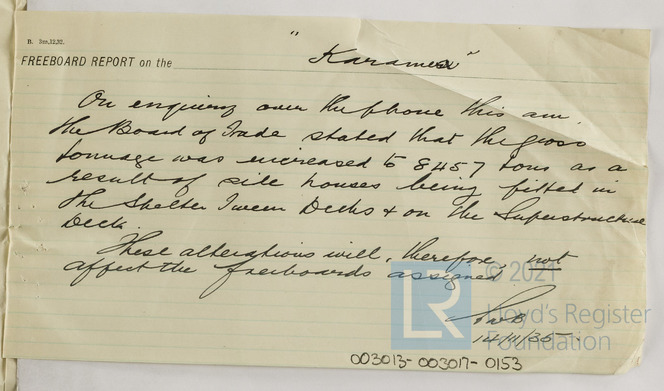 B. Dec.12,32.
FREEBOARD REPORT on the "Karamea"
On enquiring over the phone this am.
the Board of Trade stated that the gross
tonnage was increased to 8457 tons as a
result of side houses being fitted in
the Shelter Tween Decks & on the Superstructure
Deck.
These alterations will, therefore, not
affect the freeboards assigned.
14/11/35
003013-003017-0153
© 2021
LR
Lloyd's Register
Foundation